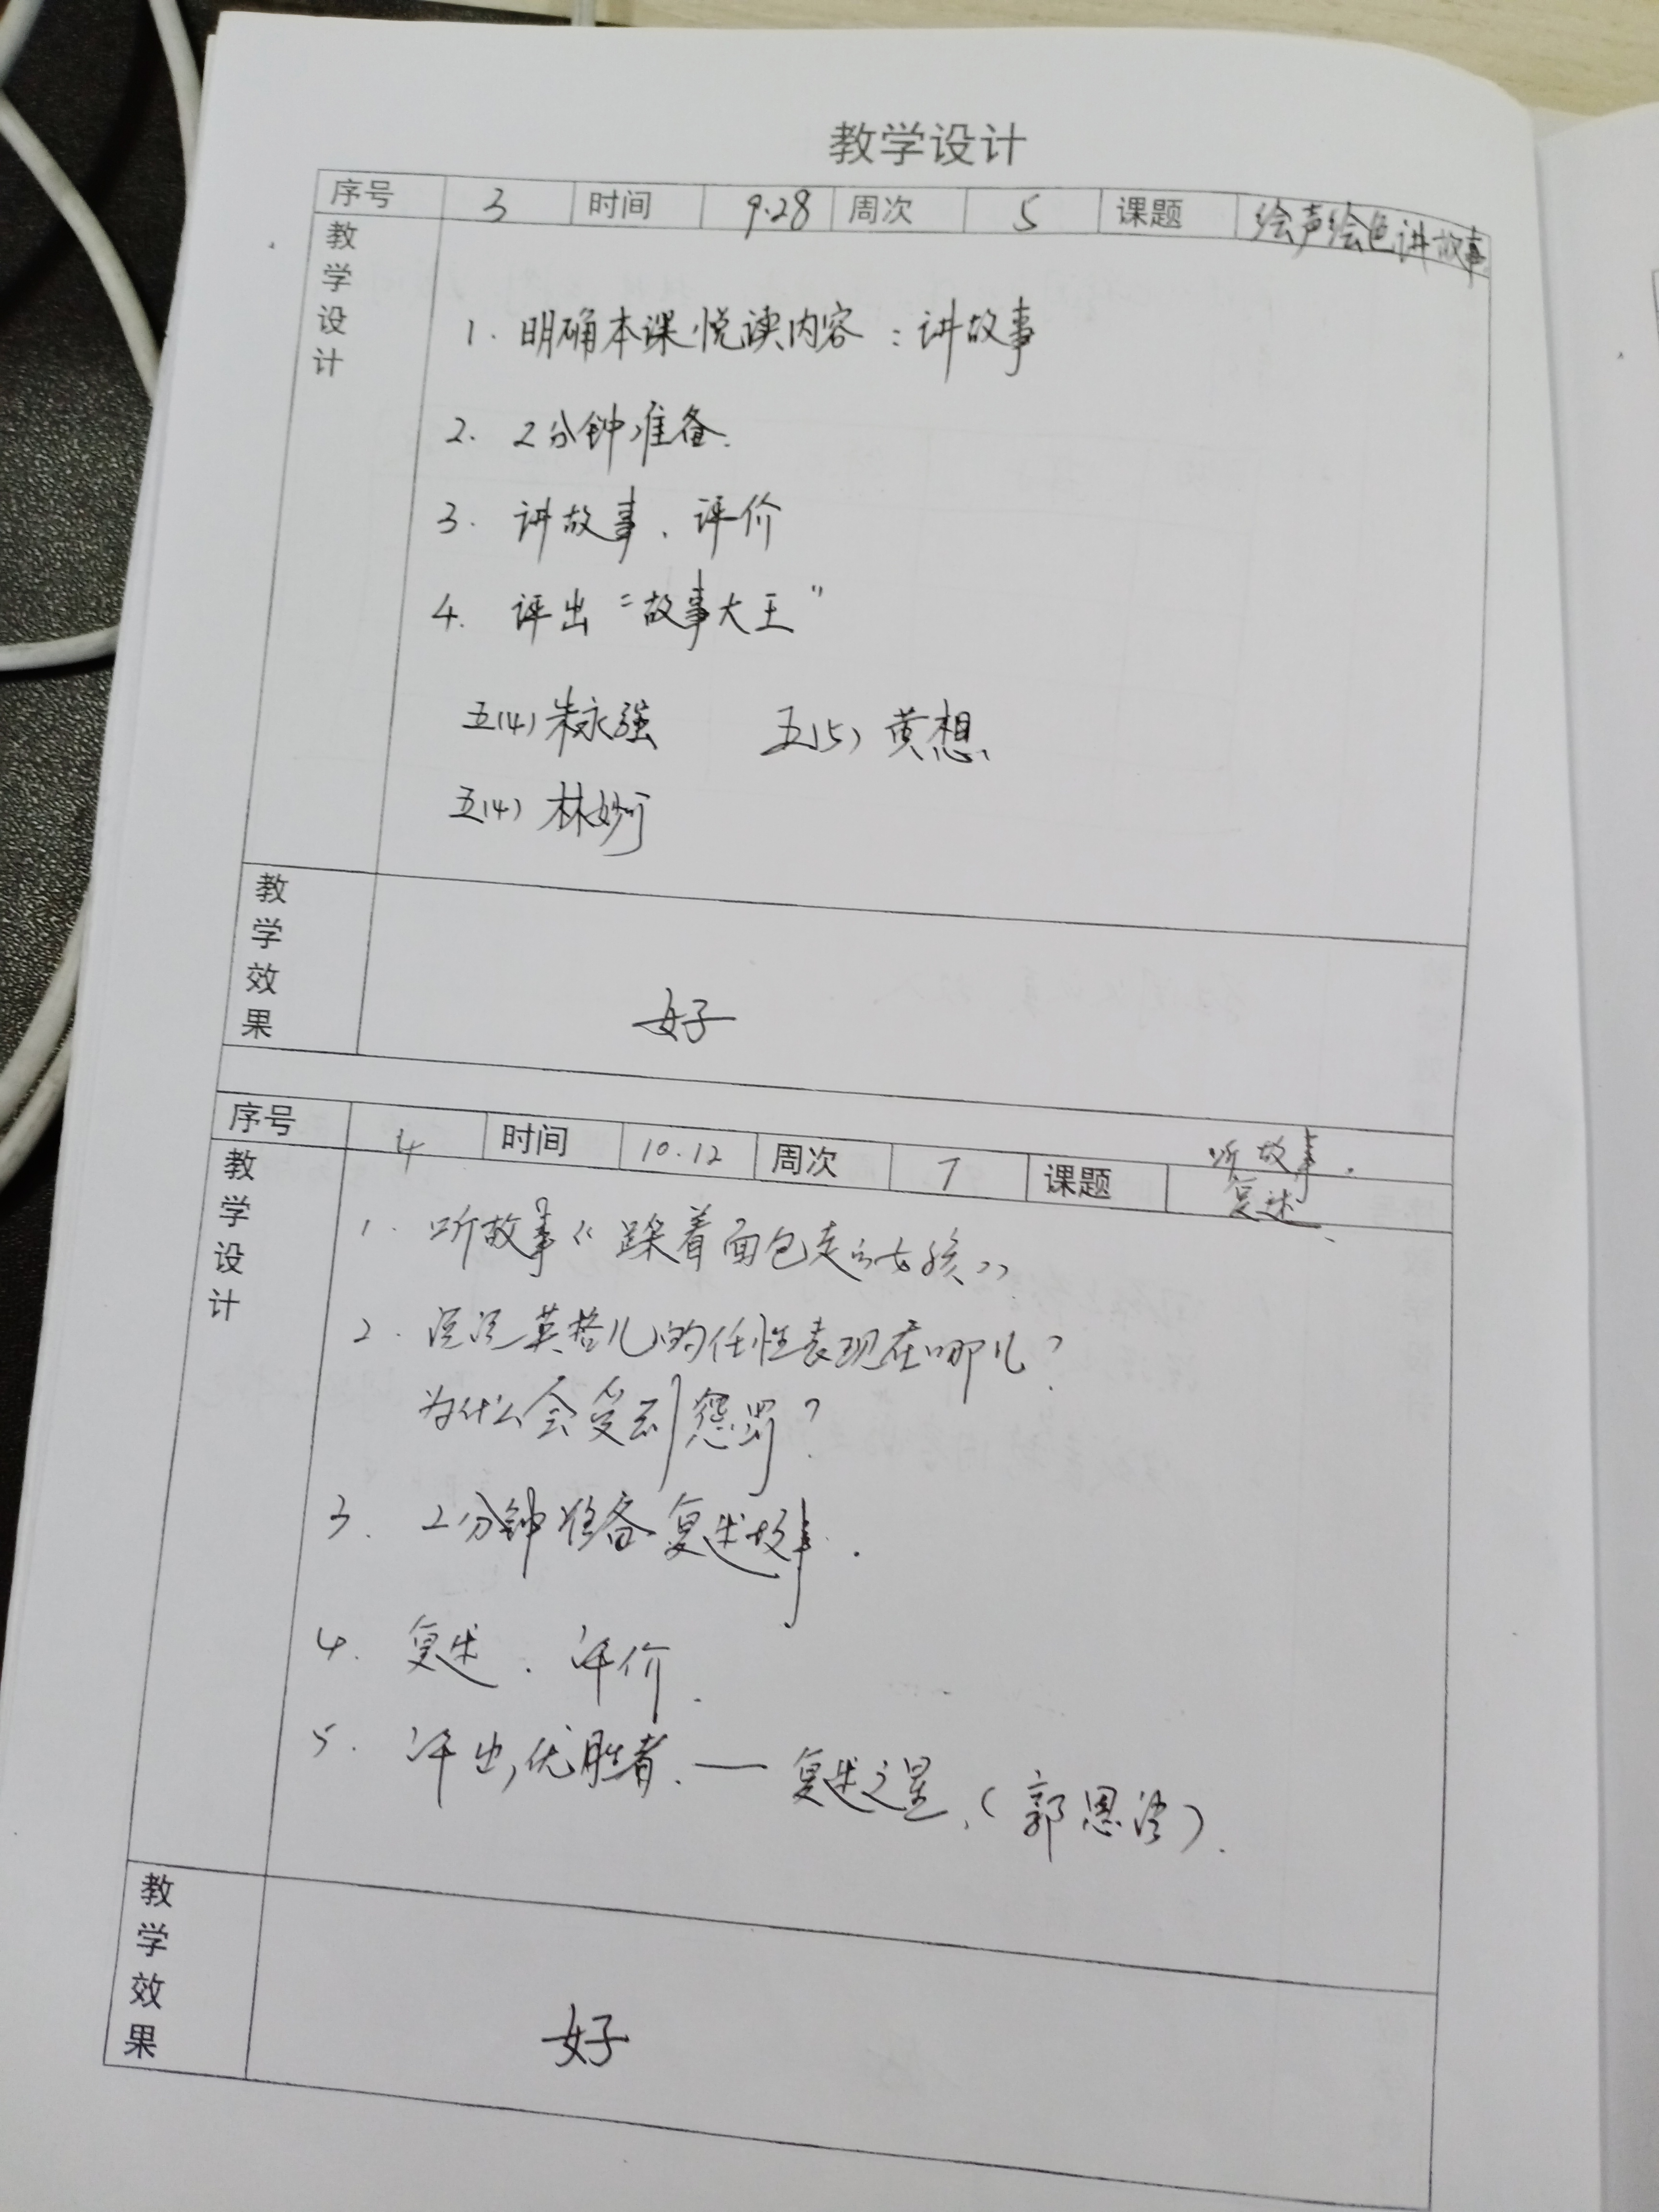 教学设计
序号 3 时间 9.28 周次 5 课题 绘声绘色讲故事
教学设计
1. 明确本课悦读内容：讲故事
2. 2分钟准备.
3. 讲故事、评价
4. 评出“故事大王”
五(4) 朱永强 五(5) 黄想
五(4) 林妙可
教学效果
好
序号 4 时间 10.12 周次 7 课题 听故事.
复述
教学设计
1. 听故事《踩着面包走的女孩》
2. 说说英格儿的任性表现在哪儿?
为什么会受到惩罚?
3. 2分钟准备复述故事.
4. 复述.评价.
5. 评出优胜者.—复述之星.(郭恩).
教学效果
好